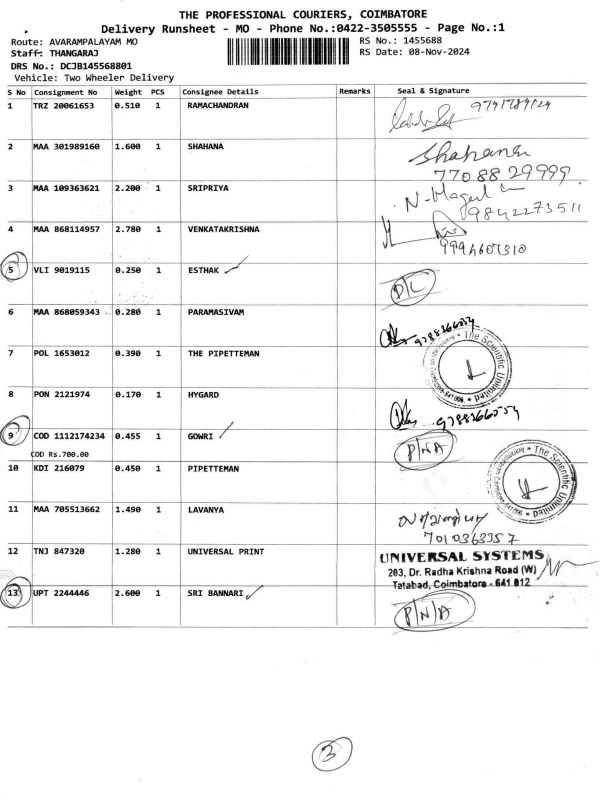 THE PROFESSIONAL COURIERS, COIMBATORE
Delivery Runsheet - MO - Phone No.:0422-3505555 - Page No.:1
Route: AVARAMPALAYAM MO RS No.: 1455688
Staff: THANGARAJ RS Date: 08-Nov-2024
DRS No.: DCJB145568801
Vehicle: Two Wheeler Delivery
S No Consignment No Weight PCS Consignee Details Remarks Seal & Signature
1 TRZ 20061653 0.510 1 RAMACHANDRAN
2 MAA 301989160 1.600 1 SHAHANA Shahana
7708829999
3 MAA 109363621 2.200 1 SRIPRIYA
9842273511
4 MAA 868114957 2.780 1 VENKATAKRISHNA
5 VLI 9019115 0.250 1 ESTHAK D/L
6 MAA 868059343 0.280 1 PARAMASIVAM
7 POL 1653012 0.390 1 THE PIPETTEMAN The Scientific Unlimited
8 PON 2121974 0.170 1 HYGARD
9 COD 1112174234 0.455 1 GOWRI P/N/A
COD Rs.700.00
10 KDI 216079 0.450 1 PIPETTEMAN The Scientific Unlimited
11 MAA 705513662 1.490 1 LAVANYA
7010363357
12 TNJ 847320 1.280 1 UNIVERSAL PRINT UNIVERSAL SYSTEMS
263, Dr. Radha Krishna Road (W)
Tatabad, Coimbatore - 641 012
13 UPT 2244446 2.600 1 SRI BANNARI P/N/A
3